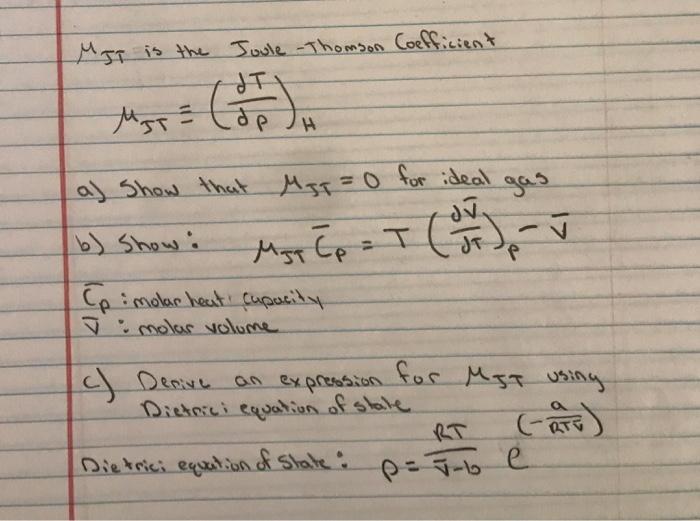 μJT is the Joule-Thomson Coefficient
μJT ≡ (dT/dp)H
a) Show that μJT = 0 for ideal gas
b) Show: μJT C̄p = T (dV̄/dT)p - V̄
C̄p : molar heat capacity
V̄ : molar volume
c) Derive an expression for μJT using
Dietrici equation of state
Dietrici equation of state: p = RT/(V̄-b) e^(-a/RTV̄)